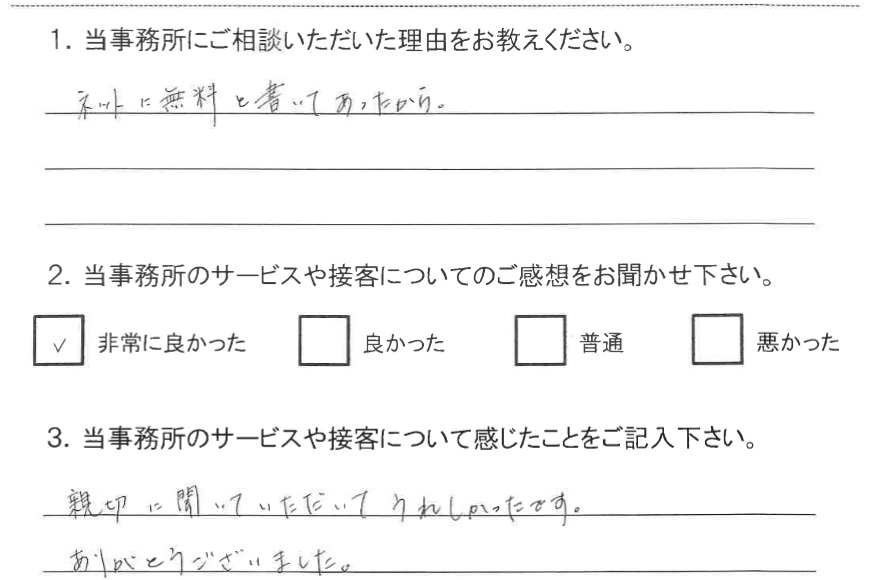 1. 当事務所にご相談いただいた理由をお教えください。
ネットに無料と書いてあったから。
2. 当事務所のサービスや接客についてのご感想をお聞かせ下さい。
✓ 非常に良かった 良かった 普通 悪かった
3. 当事務所のサービスや接客について感じたことをご記入下さい。
親切に聞いていただいてうれしかったです。
ありがとうございました。